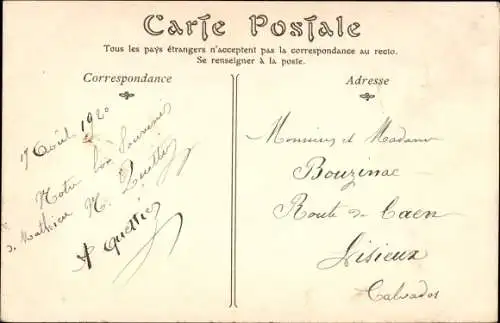 Carte Postale
Tous les pays étrangers n'acceptent pas la correspondance au recto.
Se renseigner à la poste.
Correspondance
Adresse
17 Août 1920
Notre bon Souvenir
de Mathieu N.
A Quettier
Monsieur et Madame
Bouzinac
Route de Caen
Lisieux
Calvados